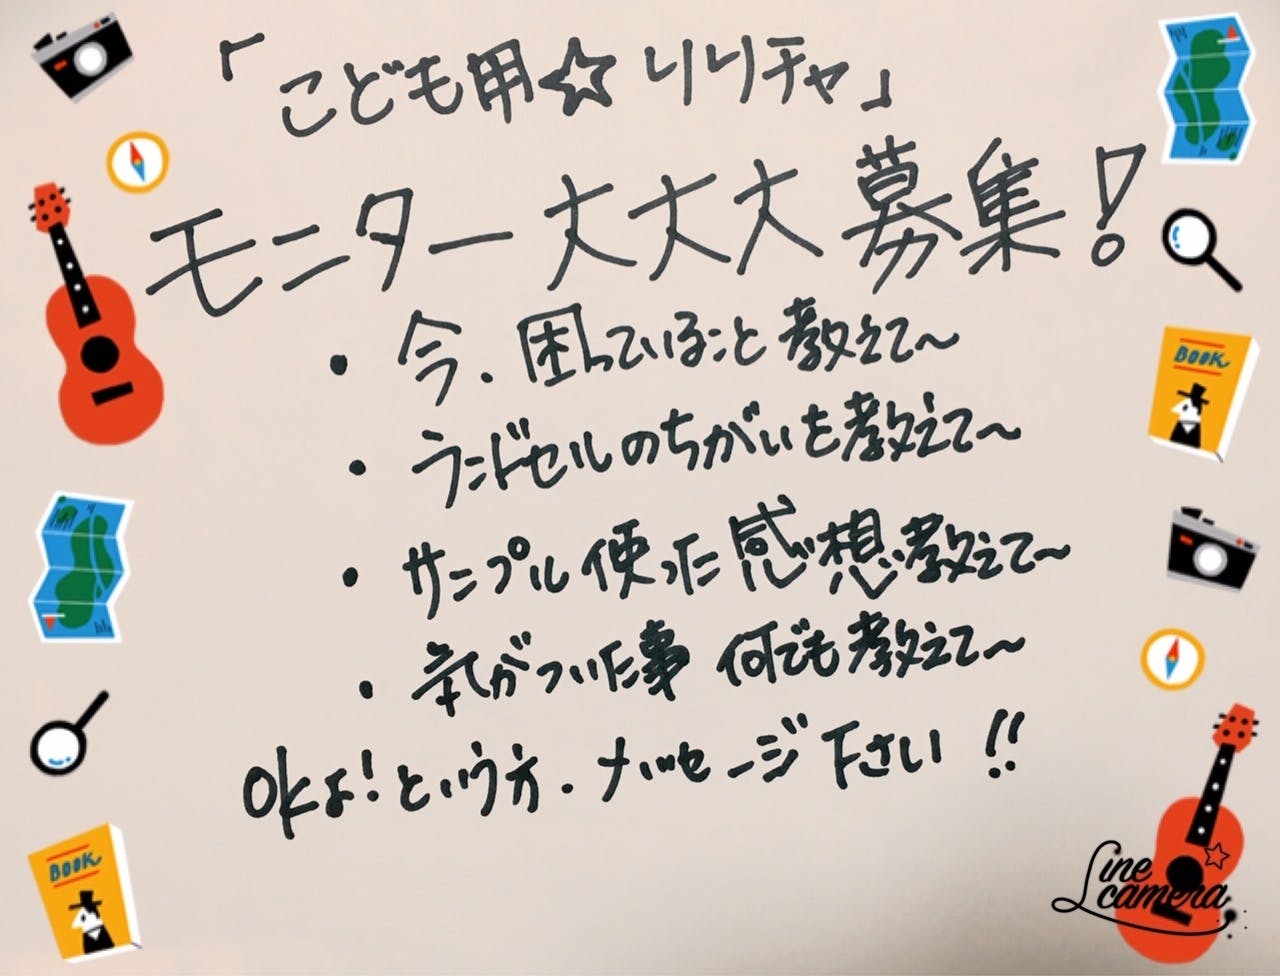 「こども用☆リリチャ」
モニター大大大募集!
・今、困っていること教えて～
・ランドセルのちがいを教えて～
・サンプル使った感想教えて～
・気がついた事 何でも教えて～
OKよ!という方、メッセージ下さい!!
BOOK
BOOK
Line camera